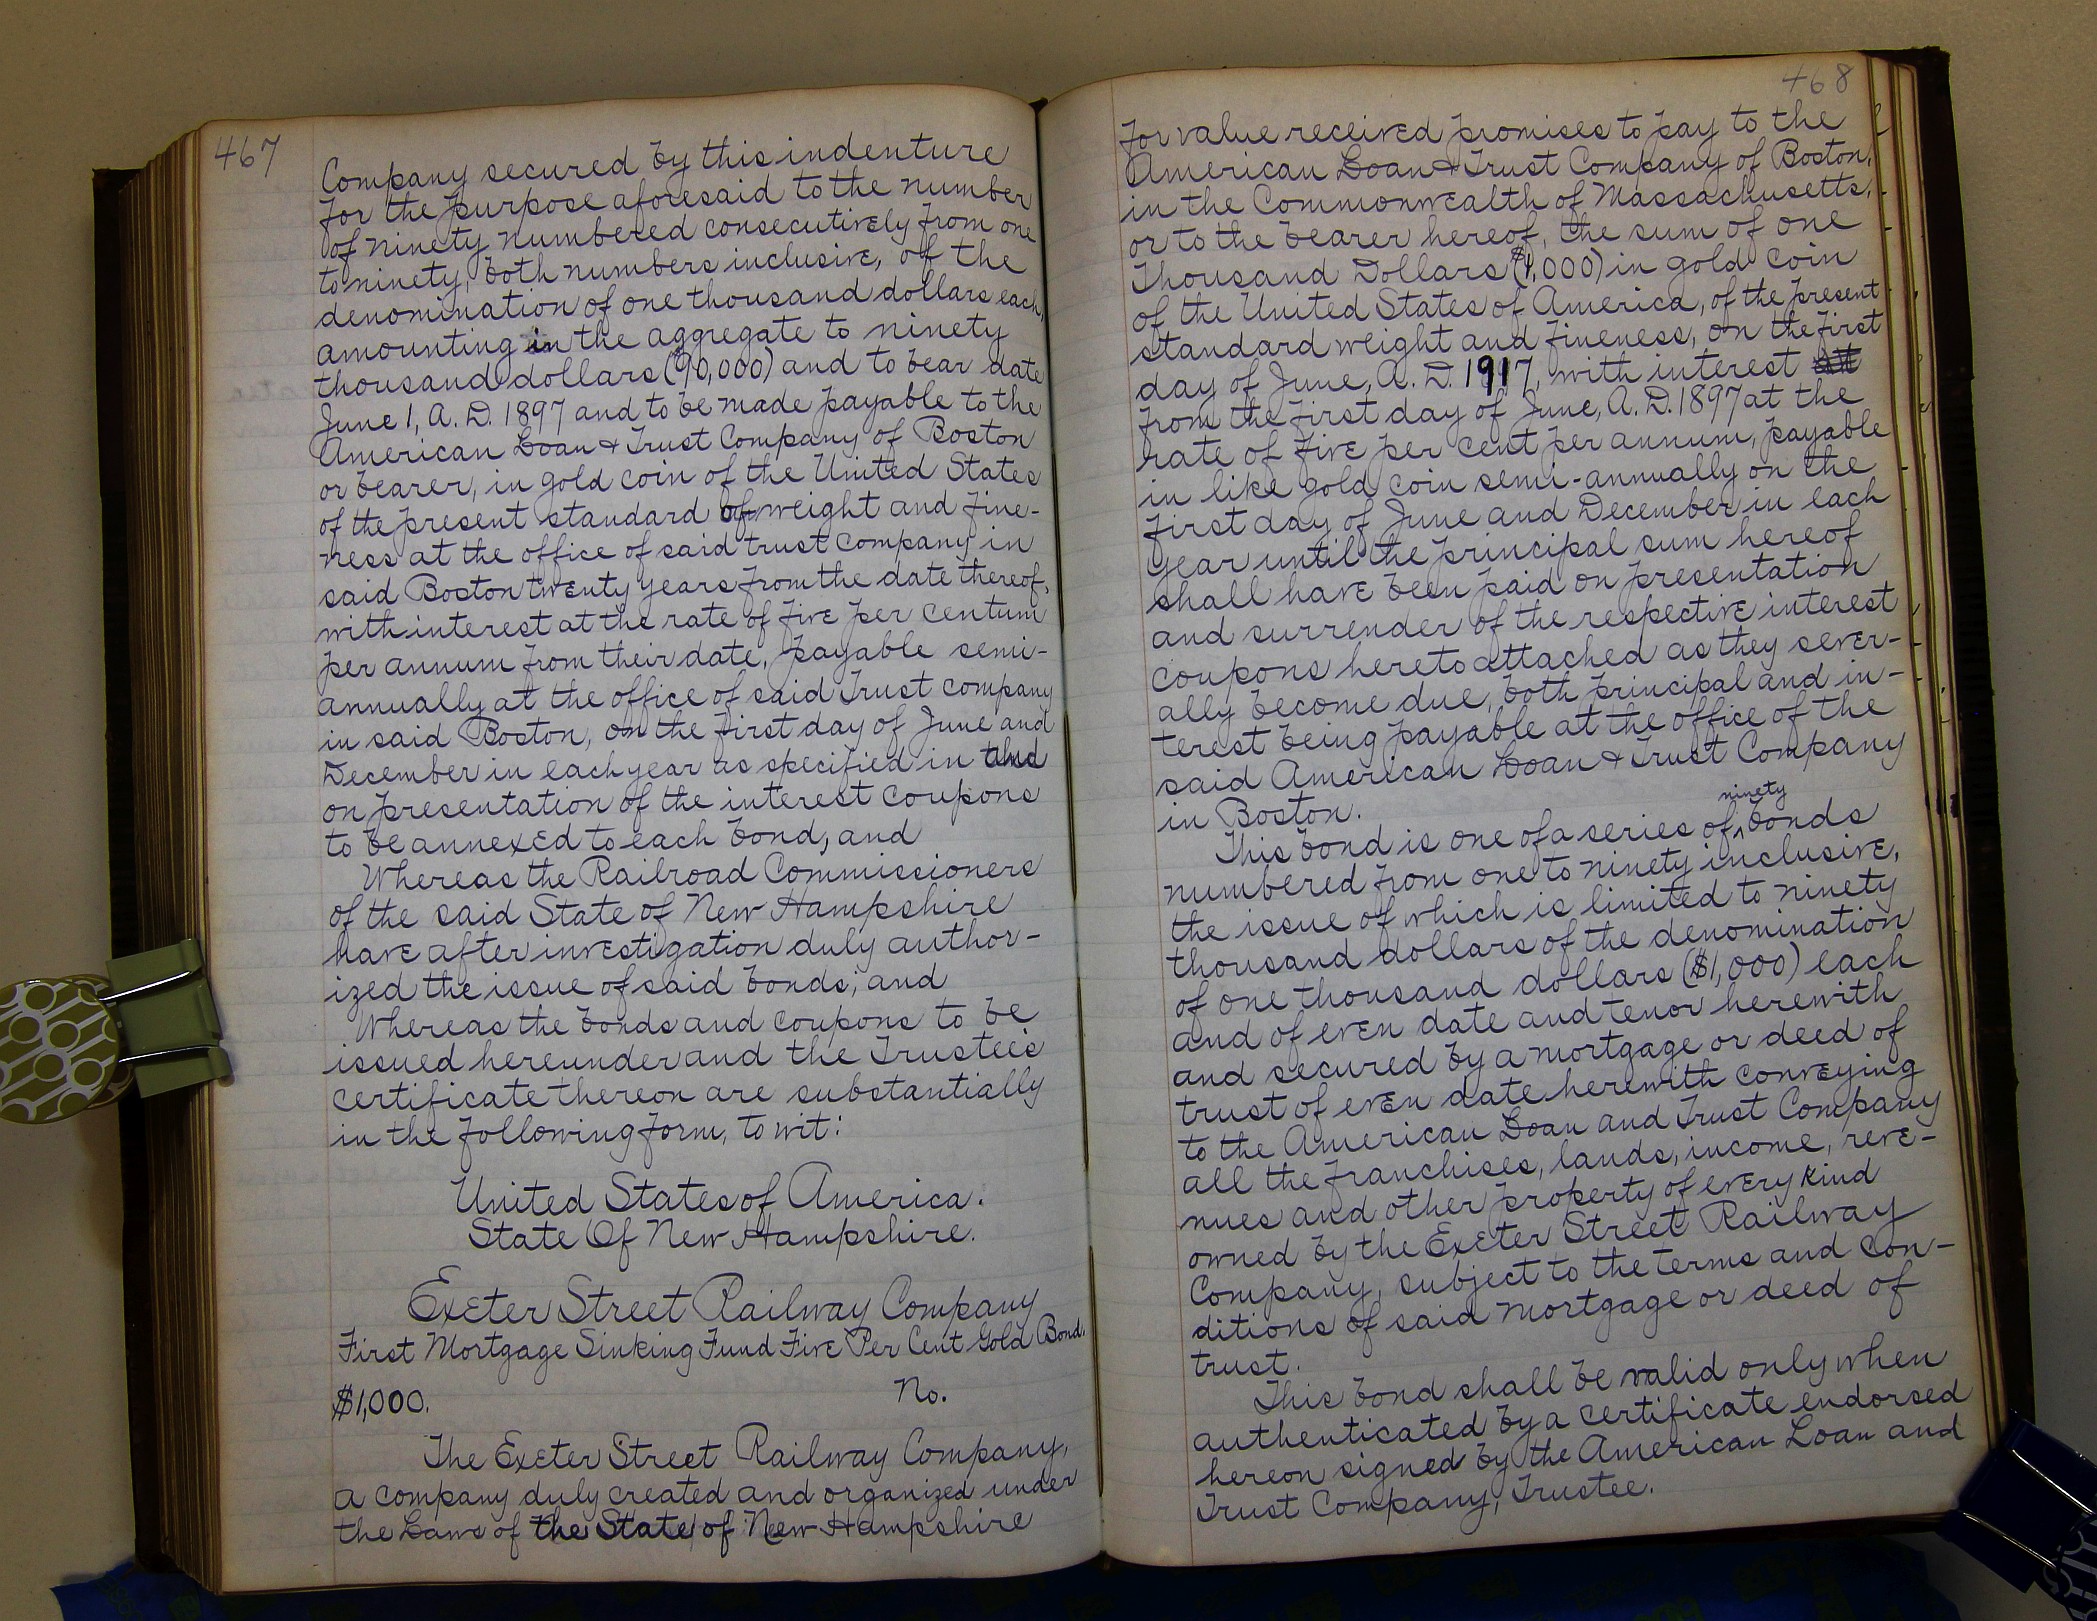 467
Company secured by this indenture
for the purpose aforesaid to the number
of ninety numbered consecutively from one
to ninety, both numbers inclusive, of the
denomination of one thousand dollars each,
amounting in the aggregate to ninety
thousand dollars ($90,000) and to bear date
June 1, A. D. 1897 and to be made payable to the
American Loan & Trust Company of Boston
or bearer, in gold coin of the United States
of the present standard of weight and fine-
ness at the office of said trust company in
said Boston twenty years from the date thereof,
with interest at the rate of five per centum
per annum from their date, payable semi-
annually at the office of said Trust company
in said Boston, on the first day of June and
December in each year as specified in and
on presentation of the interest coupons
to be annexed to each bond, and
Whereas the Railroad Commissioners
of the said State of New Hampshire
have after investigation duly author-
ized the issue of said bonds; and
Whereas the bonds and coupons to be
issued hereunder and the Trustee's
certificate thereon are substantially
in the following form, to wit:
United States of America.
State Of New Hampshire.
Exeter Street Railway Company
First Mortgage Sinking Fund Five Per Cent Gold Bond.
$1,000. No.
The Exeter Street Railway Company,
a company duly created and organized under
the Laws of the State of New Hampshire
468
for value received promises to pay to the
American Loan & Trust Company of Boston,
in the Commonwealth of Massachusetts,
or to the bearer hereof, the sum of one
Thousand Dollars ($1,000) in gold coin
of the United States of America, of the present
standard weight and fineness, on the first
day of June, A. D. 1917, with interest
from the first day of June, A. D. 1897 at the
rate of five per cent per annum, payable
in like gold coin semi-annually on the
first day of June and December in each
year until the principal sum hereof
shall have been paid on presentation
and surrender of the respective interest
coupons hereto attached as they sever-
ally become due, both principal and in-
terest being payable at the office of the
said American Loan & Trust Company
in Boston.
This bond is one of a series of ninety bonds
numbered from one to ninety inclusive,
the issue of which is limited to ninety
thousand dollars of the denomination
of one thousand dollars ($1,000) each
and of even date and tenor herewith
and secured by a mortgage or deed of
trust of even date herewith conveying
to the American Loan and Trust Company
all the franchises, lands, income, reve-
nues and other property of every kind
owned by the Exeter Street Railway
Company, subject to the terms and con-
ditions of said mortgage or deed of
trust.
This bond shall be valid only when
authenticated by a certificate endorsed
hereon signed by the American Loan and
Trust Company, Trustee.